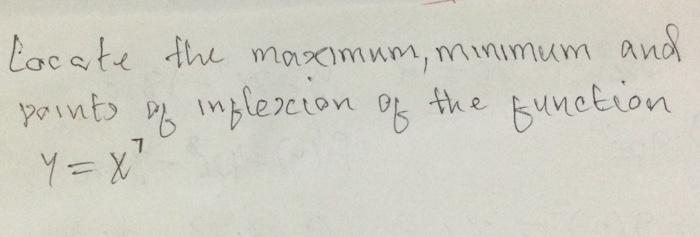 Locate the maximum, minimum and
points of inflexion of the function
Y = X⁷